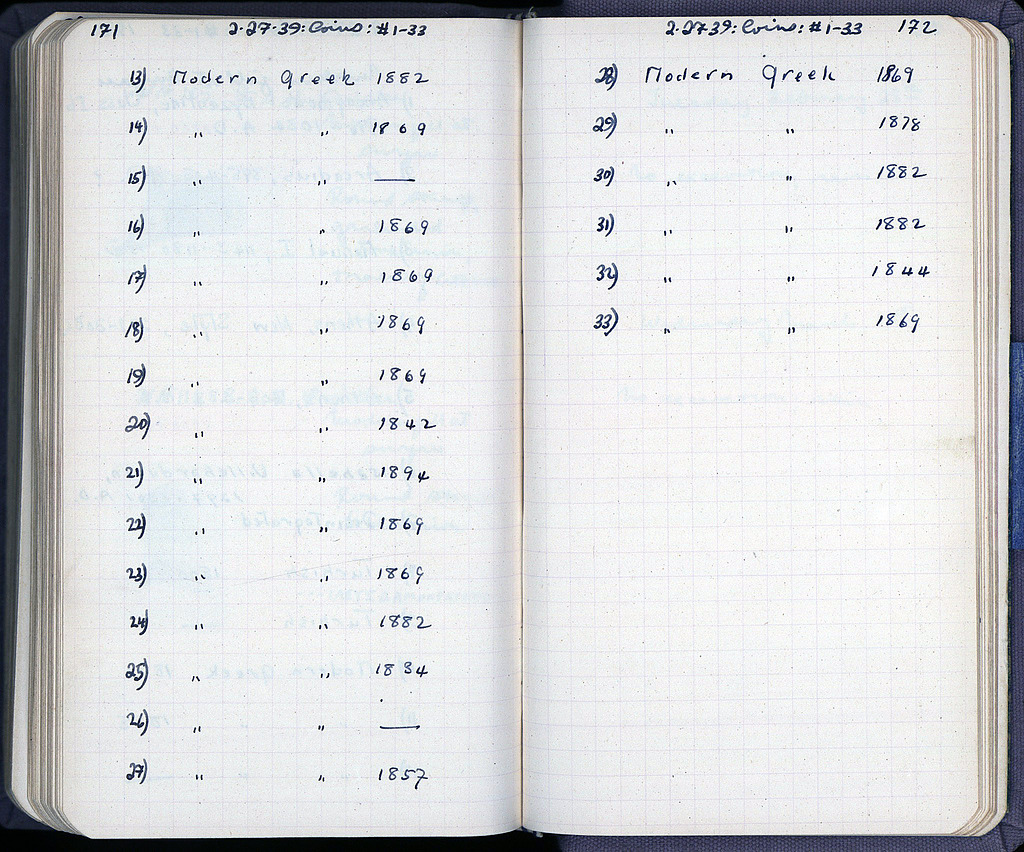 171 2-27-39: Coins: #1-33
13) Modern Greek 1882
14) " " 1869
15) " " —
16) " " 1869
17) " " 1869
18) " " 1869
19) " " 1869
20) " " 1842
21) " " 1894
22) " " 1869
23) " " 1869
24) " " 1882
25) " " 1834
26) " " —
27) " " 1857
2-27-39: Coins: #1-33 172
28) Modern Greek 1869
29) " " 1878
30) " " 1882
31) " " 1882
32) " " 1844
33) " " 1869